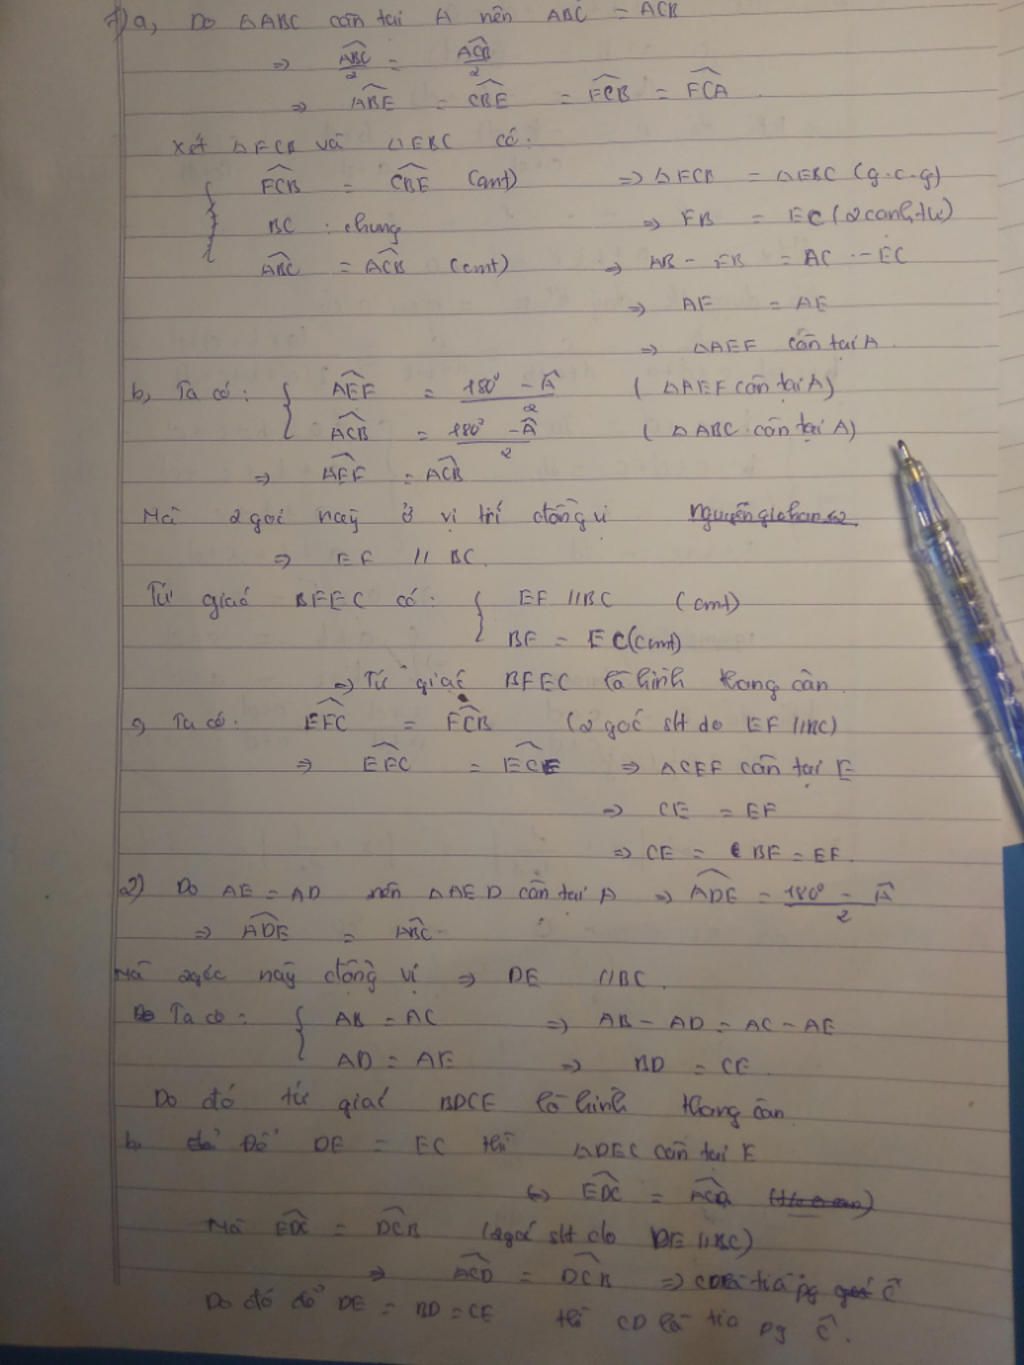 1) a, Do △ABC cân tại A nên ABC = ACB
⇒ ABC/2 = ACB/2
⇒ ABE = CBE = FCB = FCA.
Xét △FCB và △EBC có:
FCB = CBE (cmt) ⇒ △FCB = △EBC (g.c.g)
BC : chung ⇒ FB = EC (2 cạnh t.ư)
ABC = ACB (cmt) ⇒ AB - FB = AC - EC
⇒ AF = AE
⇒ △AEF cân tại A
b, Ta có: { AEF = (180° - A)/2 ( △AEF cân tại A)
ACB = (180° - A)/2 ( △ABC cân tại A)
⇒ AEF = ACB
Mà 2 góc này ở vị trí đồng vị
⇒ EF // BC.
Tứ giác BFEC có: { EF // BC (cmt)
BF = EC (cmt)
⇒ Tứ giác BFEC là hình thang cân
c, Ta có: EFC = FCB (2 góc slt do EF // BC)
⇒ EFC = ECF ⇒ △CEF cân tại E
⇒ CE = EF
⇒ CE = BF = EF.
2) Do AE = AD nên △AED cân tại A ⇒ ADE = (180° - A)/2
⇒ ADE = ABC
Mà 2 góc này đồng vị ⇒ DE // BC.
Ta có: { AB = AC ⇒ AB - AD = AC - AE
AD = AE ⇒ BD = CE.
Do đó tứ giác BDCE là hình thang cân
b, Để DE = EC thì △DEC cân tại E
⇔ EDC = ACD
Mà EDC = DCB (2 góc slt do DE // BC)
⇒ ACD = DCB ⇒ CD là tia pg C
Do đó để DE = BD = CE thì CD là tia pg C.